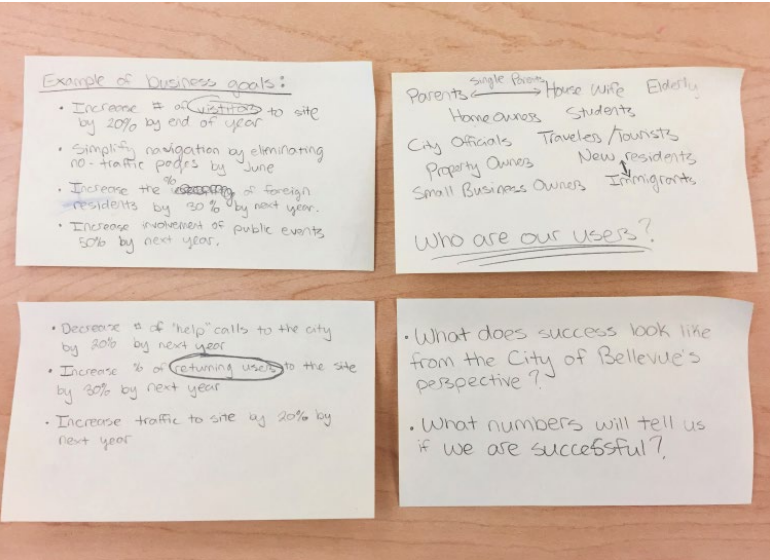 Example of business goals:
• Increase # of visitors to site
by 20% by end of year
• Simplify navigation by eliminating
no-traffic pages by June
• Increase the % of foreign
residents by 30% by next year.
• Increase involvement of public events
50% by next year.
single Parents
Parents House Wife Elderly
Homeowners Students
City Officials Travelers/Tourists
Property Owners New residents
Small Business Owners Immigrants
Who are our users?
• Decrease # of "help" calls to the city
by 20% by next year
• Increase % of returning users to the site
by 30% by next year
• Increase traffic to site by 20% by
next year
• What does success look like
from the City of Bellevue's
perspective?
• What numbers will tell us
if we are successful?